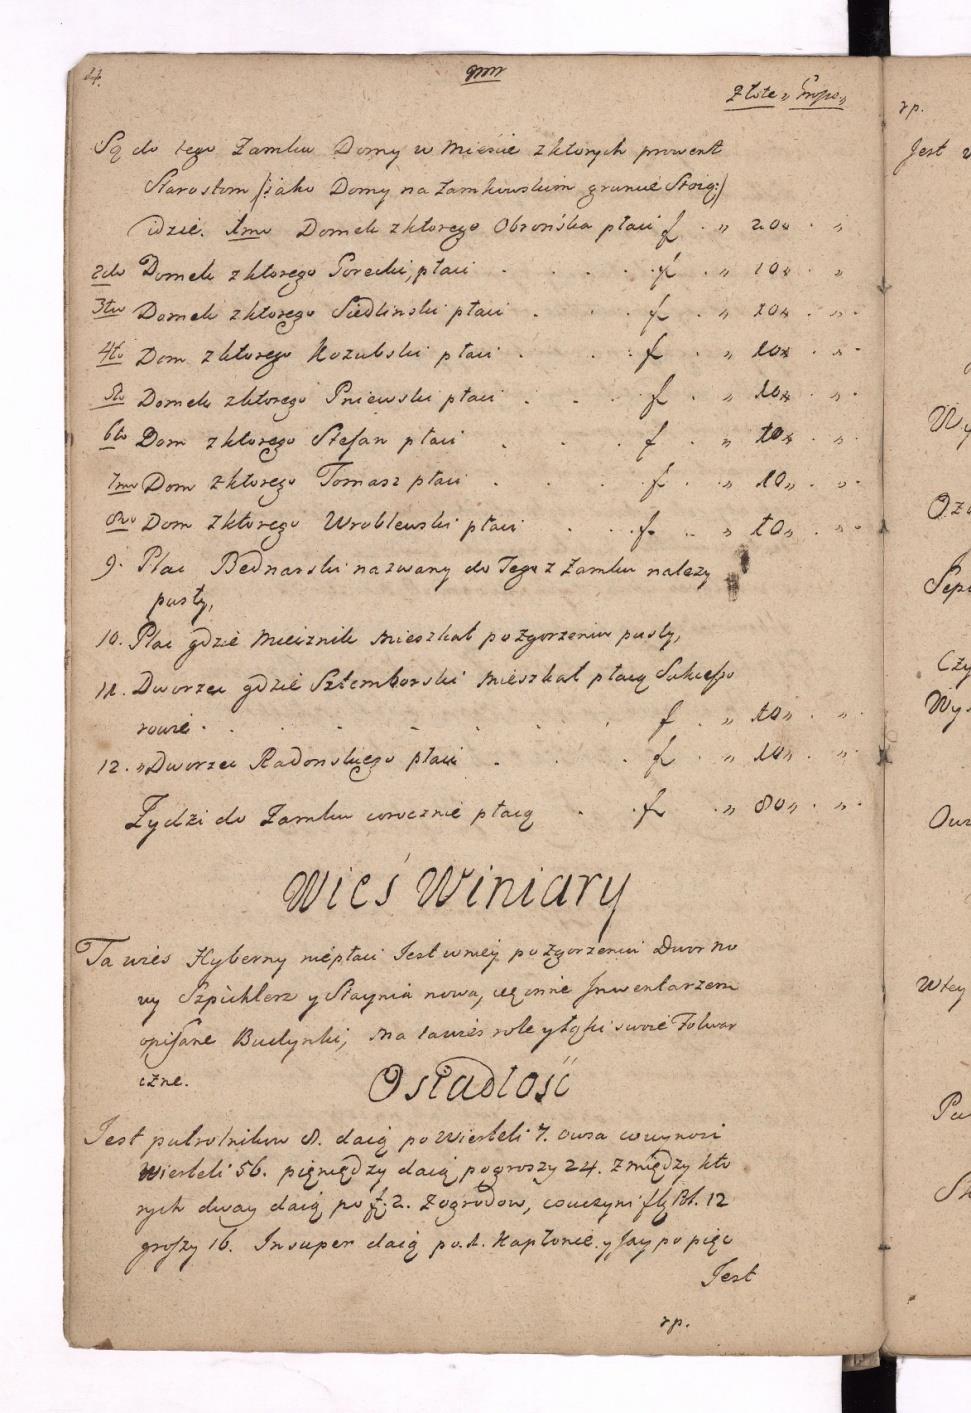 14.
Złote „ Grosze „
Są do tego Zamku Domy w Mieście z których prowent
Starostom /: jako Domy na Zamkowskim gruncie Stoią :/
idzie. 1mo Domek z ktorego Obrońska płaci f „ 20 „ „
2do Domek z ktorego Gorecki, płaci . . . f . „ 10 „ . „
3tio Domek z ktorego Siedlinski płaci . . . f . „ 20 „ . „ .
4to Dom z ktorego Kozubski płaci . . : f . „ 10 „ . „ .
5to Domek z ktorego Pniewski płaci . . . f . „ 10 „ . „ .
6to Dom z ktorego Stefan płaci . . . f . „ 10 „ . „ .
7mo Dom z ktorego Tomasz płaci . . . f . „ 10 „ . „ .
8vo Dom z ktorego Wroblewski płaci . . f . „ 10 „ . „ .
9. Plac Bednarski nazwany do Tego z Zamku nalezy
pusty,
10. Plac gdzie Miecznik Mieszkał po zgorzeniu pusty,
11. Dworzec gdzie Sztemborski Mieszkał płacą Sukcesso
rowie . . . . . . . f . „ 10 „ . „ .
12. „ Dworzec Radonskiego płaci . . . f . „ 10 „ . „ .
Zydzi do Zamku corocznie płacą . . f . „ 80 „ . „ .
Wieś Winiary
Ta wies Hyberny niepłaci Jest w niey po zgorzeniu Dwor No
wy Szpichlerz y Staynia nowa, y inne Jnwentarzem
opisane Budynki, Ma ta wies role y Łąki swoie Folwar
czne.
Osiadłość
Jest pułrolnikow 8. daią po Wierteli 7. owsa co wynosi
Wierteli 56. pięniędzy daią po groszy 24. z między kto
rych dway daią po f: 2. Zogrodow, co uczyni fl Pol. 12
groszy 16. Insuper daią po .1. Kapłonie. y Jay po pięc
Jest
rp.
rp.
Jest